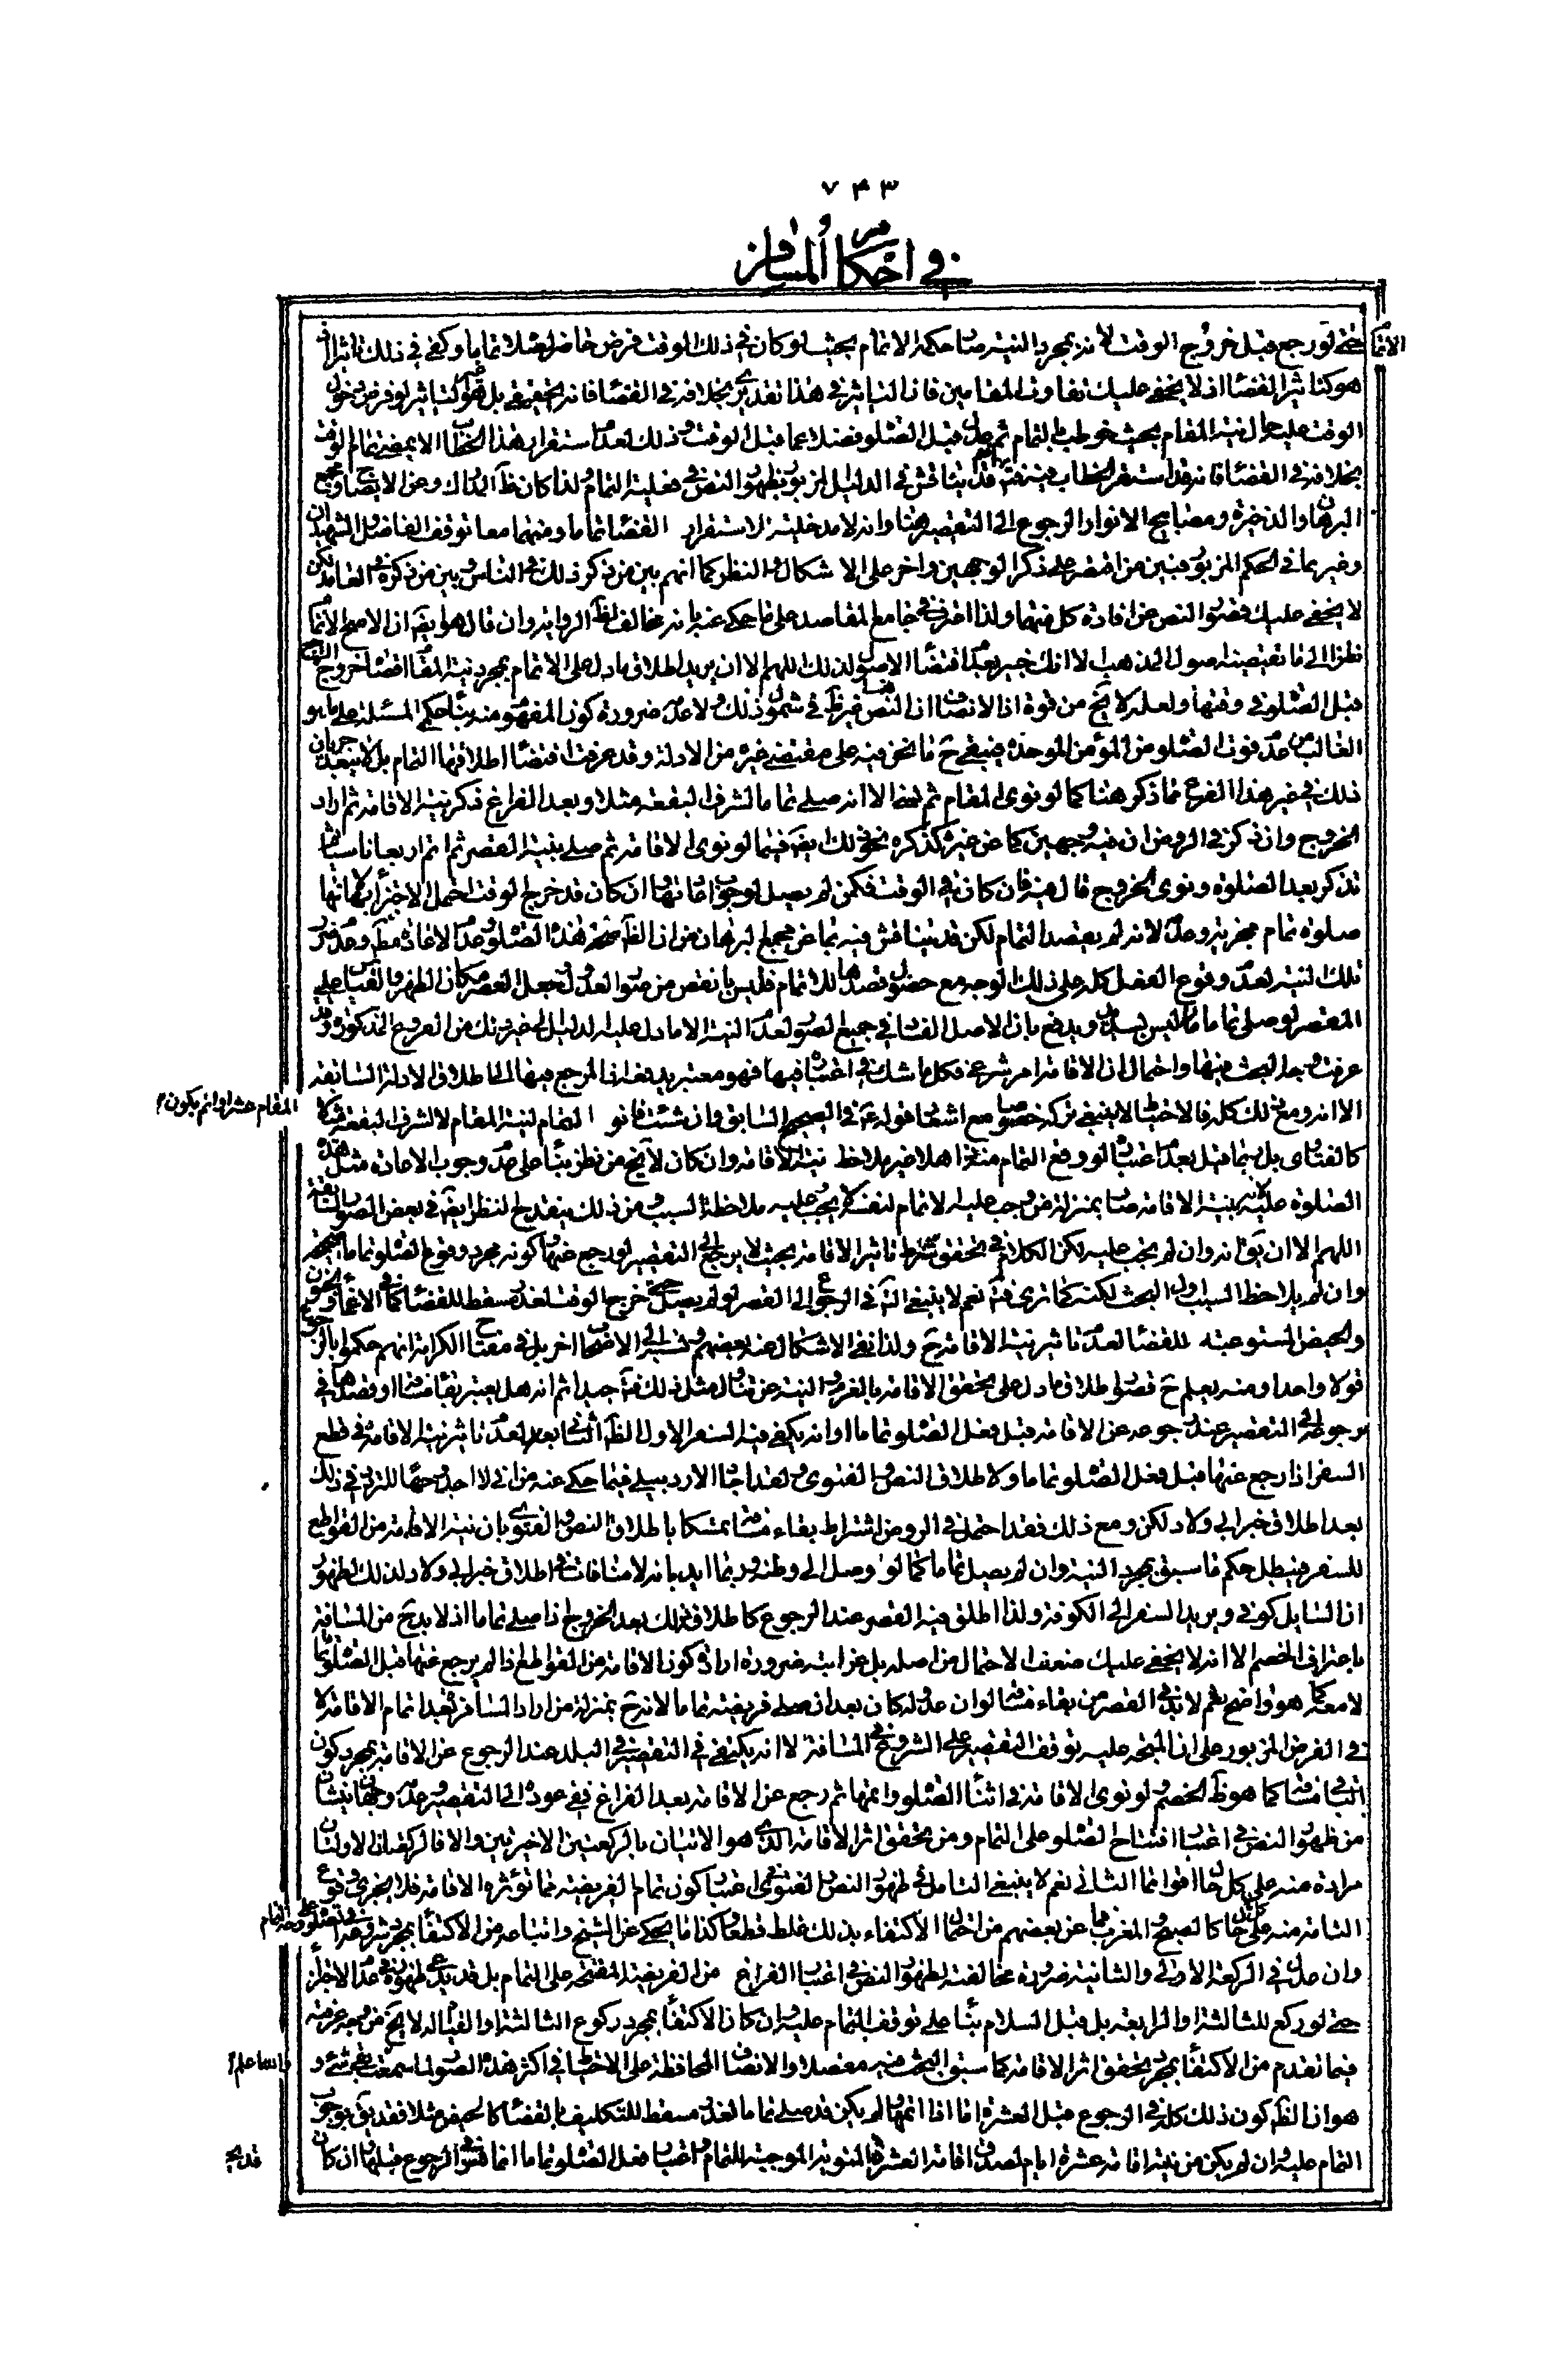 ٧٤٣
في احكام المسافر
حتى لو رجع قبل خروج الوقت لانه بمجرد النية صار حكمه الاتمام بحيث لو كان في ذلك الوقت فرض خاضرا صلاه تماما وكفى في ذلك تاثيرا
هو كتاثير القضاء اذ لا يخفى عليك تفاوت المقامين فان التاثير في هذا تقديري بخلافه في القضاء فانه حقيقي بل هو كتاثير لو فرض دخول
الوقت عليه حال نية المقام بحيث خوطب بالتمام ثم عدل قبل الصلوة فضلا عما قبل الوقت وذلك لعدم استقرار هذا الخطاب الا بمضي تمام الوقت
بخلافه في القضاء فانه قد استقر الخطاب فيه قد يناقش في الدليل المزبور بظهور النص في فعلية التمام ولذا كان ظاهر المدارك وعن الايضاح ومجمع
البرهان والذخيرة ومصابيح الانوار الرجوع الى التقصير هنا وانه لا مدخلية لاستقرار القضاء تماما ومنهما معا توقف الفاضل والشهيدان
وغيرهما في الحكم المزبور فبين من اقتصر على ذكر الوجهين واخر على الاشكال والنظر كما انهم بين من ذكر ذلك في الناسي وبين من ذكره في العامد لكن
لا يخفى عليك قصور النص عن افادة كل منهما ولذا اعترف في جامع المقاصد على ما حكي عنه بانه مخالف لظاهر الرواية وان قال هو ايضا ان الاصح الاتمام
نظرا الى ما تقتضيه اصول المذهب الا انك خبير بعدم اقتضاء الاصول لذلك اللهم الا ان يريد اطلاق ما دل على الاتمام بمجرد نية المقام اقصاه خروج
قبل الصلوة في وقتها ولعله لا يخ من قوة اذ الانصاف ان النص غير ظاهر في شمول ذلك ولا عدمه ضرورة كون المفهوم منه بيان حكم المسئلة على ما هو
الغالب من عدم فوت الصلوة من المؤمن الموحد فيبقى ح ما نحن فيه على مقتضى غيره من الادلة وقد عرفت اقتضاء اطلاقها التمام بل لا يبعد جريان
ذلك في غير هذا الفرع مما ذكر هنا كما لو نوى المقام ثم الا انه صلى تماما لشرف البقعة مثلا وبعد الفراغ ذكر نية الاقامة ثم اراد
الخروج وان ذكر في الروض ان فيه وجهين كما عن غيره كذكره نحو ذلك ايضا فيما لو نوى الاقامة ثم صلى بنية القصر ثم اتم اربعا ناسيا ثم
تذكر بعد الصلوة ونوى الخروج قال فيه فان كان في الوقت فكمن لم يصل لوجوب اعادتها وان كان قد خرج الوقت احتمل الاجتزاء بها لانها
صلوة تمام مجزية وعدمه لانه لم يقصد التمام لكن قد يناقش فيه بما عن مجمع البرهان من ان الظاهر صحة هذه الصلوة وعدم الاعادة مطلقا وعدم ضرر
تلك النية لعدم وقوع الفعل كله على ذلك الوجه مع حصول قصدها للاتمام فليس بانقص من صور العدول جعل العصر مكان الظهر والقياس على
المقصر لو صلى تماما عامدا ليس بسديد ويدفع بان الاصل الفساد في جميع الصور لعدم النية الا ما دل عليه الدليل لخبر ذلك من الفروع المذكورة وقد
عرفت وجه البحث فيها واحتمال ان الاقامة امر شرعي فكل ما شك في اعتباره فيها فهو معتبر يدفعه ان المرجع فيها الى اطلاق الادلة السابقة
الا انه ومع ذلك كله فالاحتياط لا ينبغي تركه خصوصا مع اشعار قوله في الصحيح السابق وان شئت فانو المقام عشرا واتم بكون التمام لنية المقام لا لشرف البقعة كما
كالفتاوى بل ربما قيل بعدم اعتبار لو وقع التمام منه ذاهلا غير ملاحظ نية الاقامة وان كان لا يخ من نظر بناء على عدم وجوب الاعادة مثل هذه
الصلوة عليه لانه بنية الاقامة صار بمنزلة من وجب عليه الاتمام لنفسه لا يجب عليه ملاحظة السبب من ذلك ينقدح النظر ايضا في بعض الصور السابقة
اللهم الا ان يق انه وان لم يجب عليه لكن الكلام في تحقق شرط تاثير الاقامة بحيث لا يرجع الى التقصير لو رجع عنها كونه مجرد وقوع الصلوة تماما صحيحة
وان لم يلاحظ السبب اول البحث لكنه كما ترى فت نعم لا ينبغي التامل في الرجوع الى القصر لو لم يصل حتى خرج الوقت لعذر مسقط للقضاء كالاغماء والجنون
والحيض المستوعبة للقضاء لعدم تاثير نية الاقامة ح ولذا نفى الاشكال عنه بعضهم ونسبه الى الاصحاب اخر بل في مفتاح الكرامة انهم حكموا بالرجوع
قولا واحدا ومنه يعلم ح قصور اطلاق ما دل على تحقق الاقامة بالعزم والنية عن تناول مثل ذلك فت جيدا ثم انه هل يعتبر بقاء مسافة او قصدها في
رجوعه الى التقصير عند رجوعه عن الاقامة قبل فعل الصلوة تماما او انه يكفي فيه السفر الاول الظاهر الثاني لعدم تاثير نية الاقامة في قطع
السفر اذا رجع عنها قبل فعل الصلوة تماما ولاطلاق النص والفتوى ولقد اجاد الاردبيلي فيما حكي عنه من اني لا اجد وجها للتردد في ذلك
بعد اطلاق خبر ابي ولاد لكن ومع ذلك فقد احتمل في الروض اشتراط بقاء مسافة تمسكا باطلاق النص والفتوى بان نية الاقامة من القواطع
للسفر فيبطل حكم ما سبق بمجرد النية وان لم يصل تماما كما لو وصل الى وطنه وربما ايد بانه لا منافاة في اطلاق خبر ابي ولاد لذلك لظهور
ان السايل كوفي ويريد السفر الى الكوفة ولذا اطلق فيه القصر عند الرجوع كاطلاق ذلك بعد الخروج اذا صلى تماما اذ لا بد ح من المسافة
باعتراف الخصم الا انه لا يخفى عليك ضعف الاحتمال من اصله بل غرابته ضرورة ارادة كون الاقامة من القواطع اذا لم يرجع عنها قبل الصلوة تماما
لا معه كما هو واضح نعم لا بد في القصر من بقاء مسافة لو ان عدوله كان بعد ان صلى فريضة تماما لانه ح بمنزلة من اراد السافر بعد اتمام الاقامة لا
في الفرض المزبور على ان المتجه عليه توقف التقصير على الشروع في المسافة لا انه يكتفى في التقصير في البلد عند الرجوع عن الاقامة بمجرد كون
الباقي مسافة كما هو ظاهر الخصم ولو نوى الاقامة في اثناء الصلوة واتمها ثم رجع عن الاقامة بعد الفراغ ففي عوده الى التقصير وعدمه وجهان ينشان
من ظهور النص في اعتبار افتتاح الصلوة على التمام ومن تحقق اثر الاقامة الذي هو الاتيان بالركعتين الاخيرتين والا فالركعتان الاولتان
مرادة منه على كل حال اقواهما الثاني نعم لا ينبغي التامل في ظهور النص والفتوى في اعتبار كون تمام الفريضة مما تؤثره الاقامة فلا يجزي وقوع
التامة منه على كل حال كالصبح والمغرب فما عن بعضهم من احتمال الاكتفاء بذلك غلط قطعا وكذا ما يحكى عن الشيخ واتباعه من الاكتفاء بمجرد شروعه في الصلوة على وجه التمام
وان عدل في الركعة الاولى والثانية ضرورة مخالفته لظهور النص في اعتبار الفراغ من الفريضة المفتتحة على التمام بل قد يدعى ظهوره في عدم الاجتزاء
حتى لو ركع للثالثة او الرابعة بل قبل السلام بناء على توقف التمام عليه وان كان الاكتفاء بمجرد ركوع الثالثة او القيام له لا يخ من وجه عرفته
فيما تقدم من الاكتفاء بمجرد تحقق اثر الاقامة كما سبق البحث فيه مفصلا والانصاف المحافظة على الاحتياط في اكثر هذه الصور لما سمعت بقي شئ و
هو ان الظاهر كون ذلك كله في الرجوع قبل العشرة اما اذا اتمها ولم يكن قد صلى تماما لعذر مسقط للتكليف بالقضاء كالحيض مثلا فقد يق بوجوب
التمام عليه وان لم يكن من نية اقامة عشرة ايام لصدق اقامة العشرة المنوية الموجبة للتمام واعتبار فعل الصلوة تماما انما هو في الرجوع قبلها وان كان
قد يخ